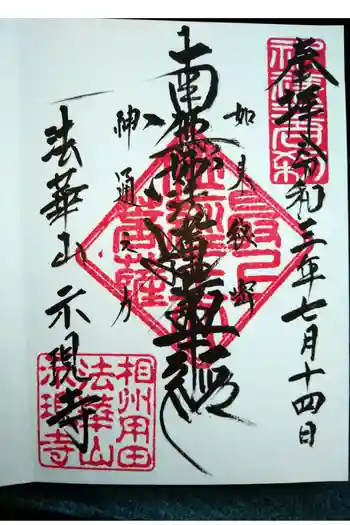 奉拝
令和三年七月十四日
如来秘密
南無妙法蓮華経
神通之力
法華山
示現寺
相州用田
法華山
示現寺